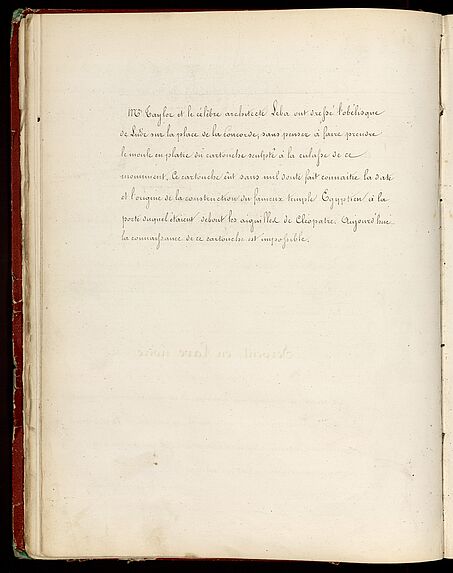 Mr Taylor et le célèbre architecte Leba ont dressé l'obélisque
de sur la place de la concorde, sans penser à faire prendre
le moule en platre du cartouche sculpté à la culasse de ce
monument. Ce cartouche eût sans nul doute fait connaitre la date
et l'origine de la construction du fameux temple Egyptien à la
porte duquel étaient debout les aiguilles de Cléopatre. Aujourd'hui
la connaissance de ce cartouche est impossible.